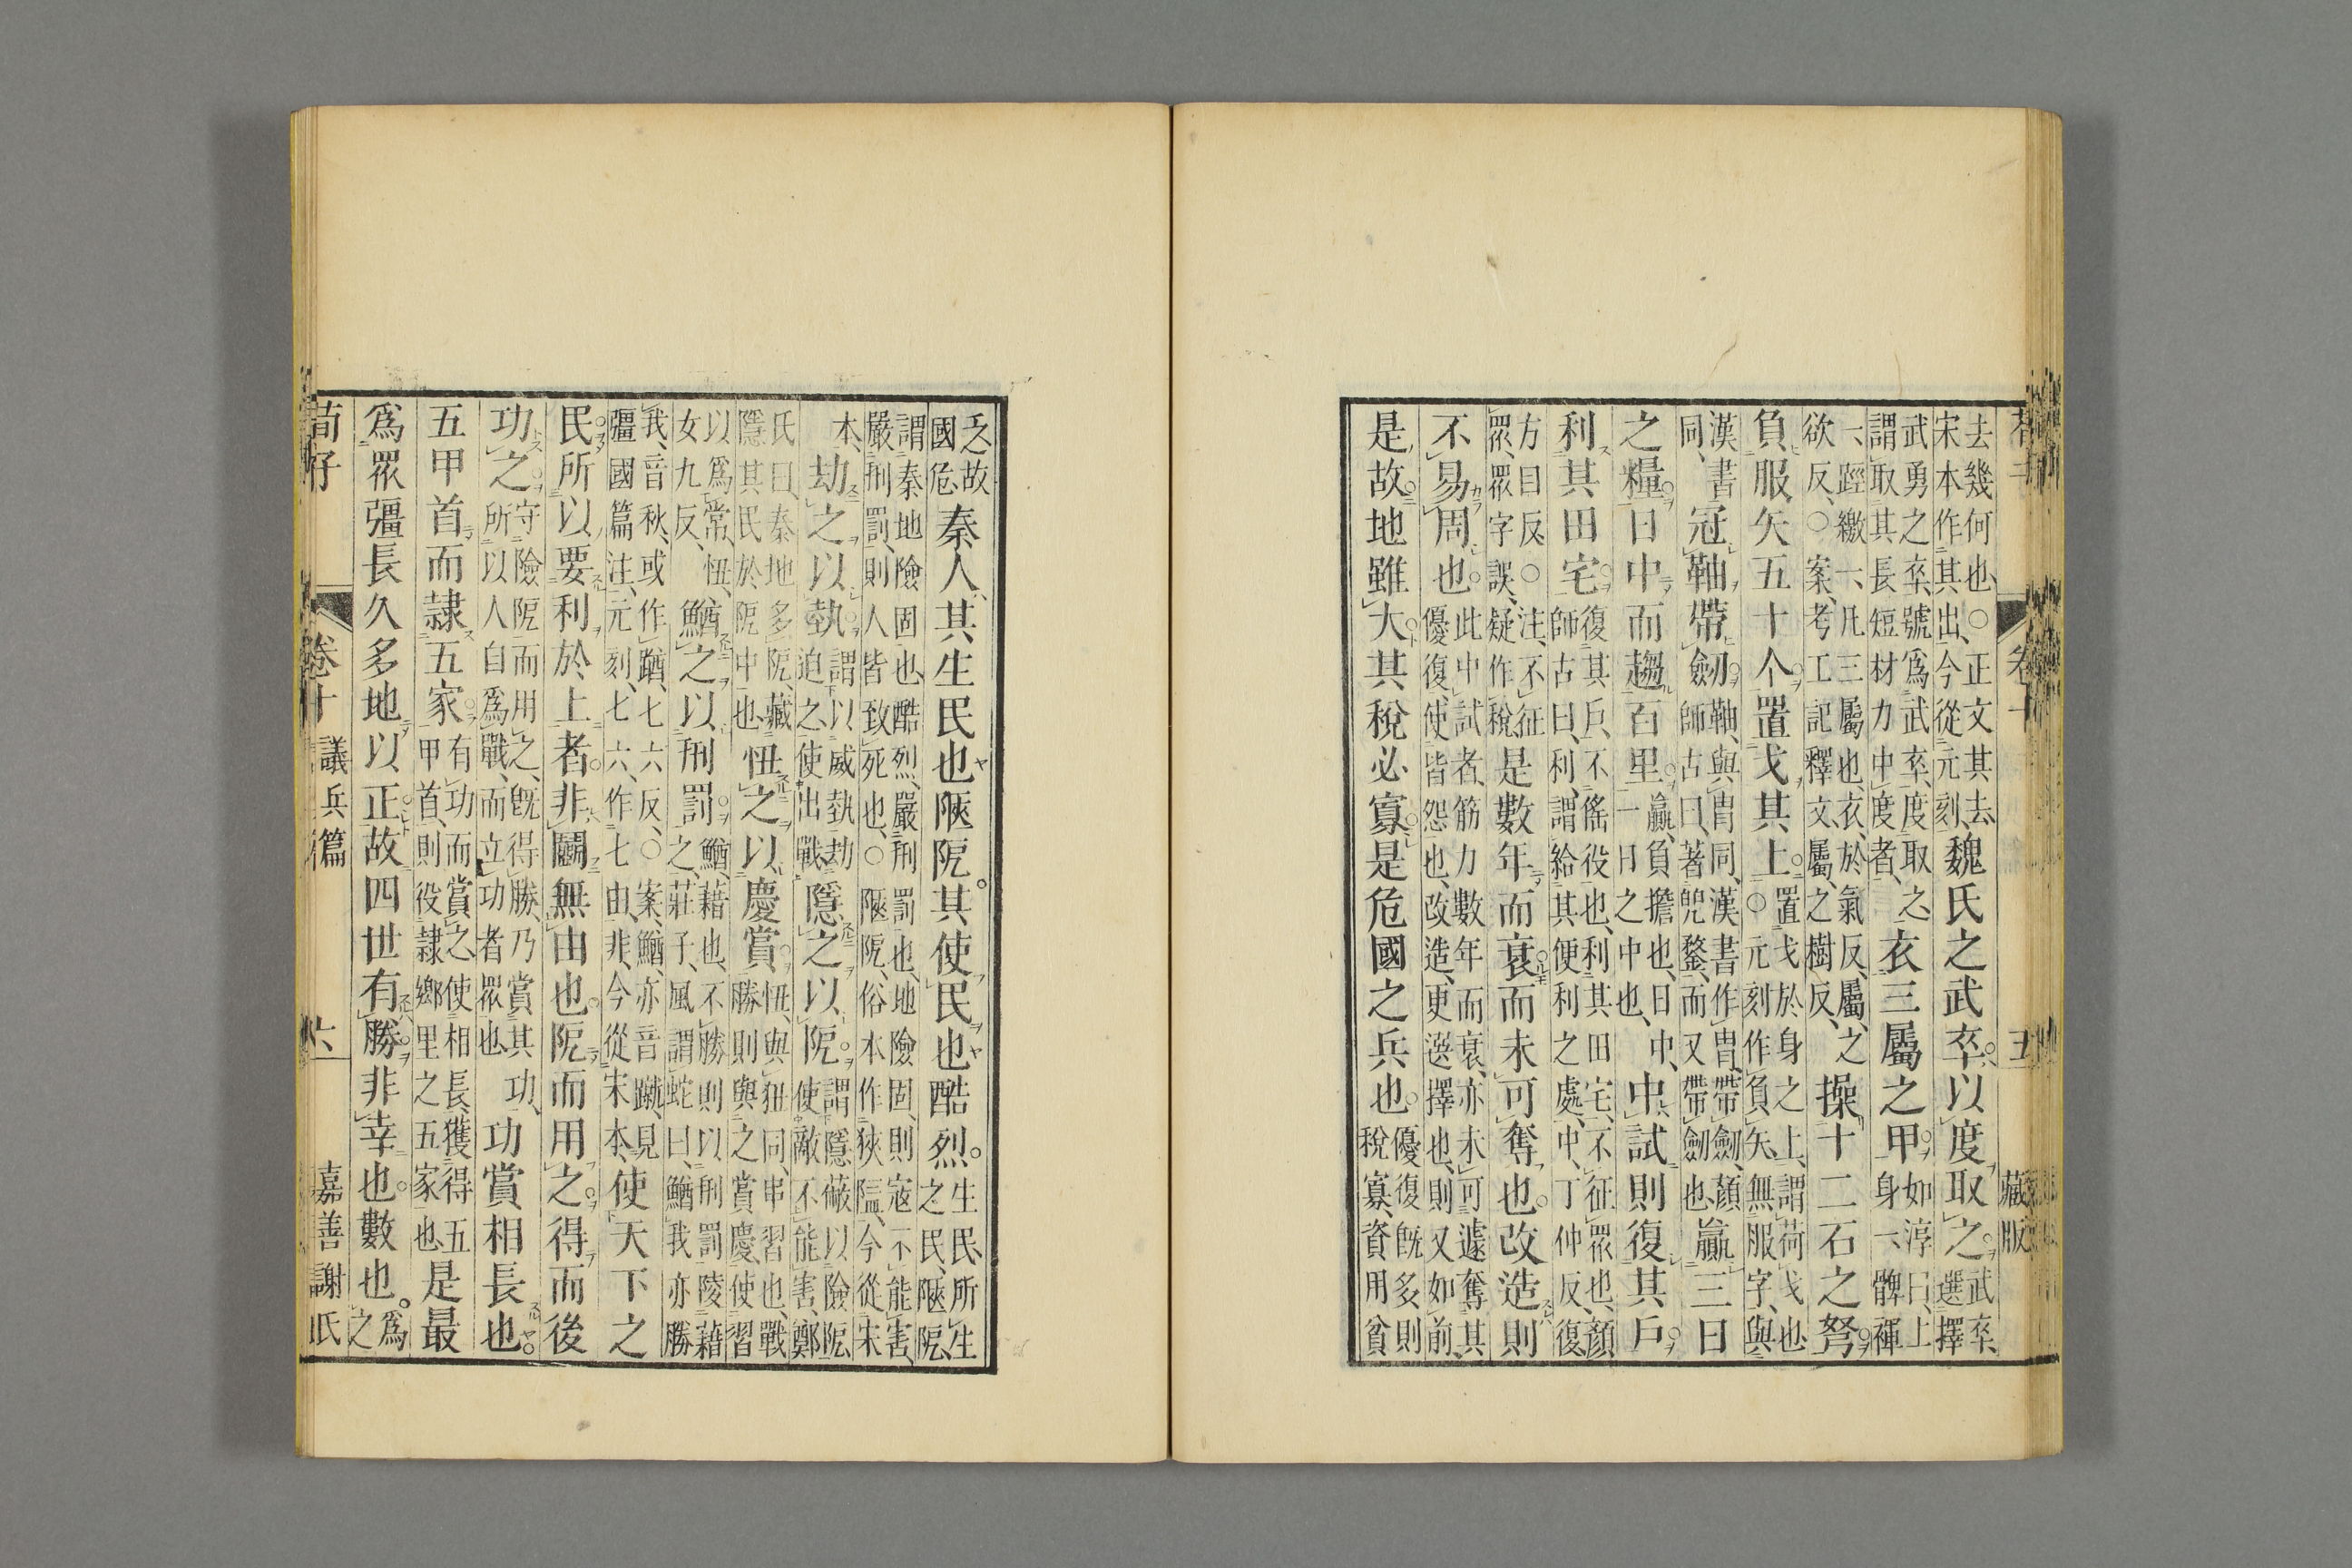 去幾何也○正文其去
宋本作其出今從元刻魏氏之武卒以度取之武卒選擇
武勇之卒號爲武卒度取之
謂取其長短材力中度者衣三屬之甲如淳曰上身一髀褌
一踁繳一凡三屬也衣於氣反屬之
欲反○案考工記釋文屬之樹反操十二石之弩
負服矢五十个置戈其上置戈於身之上謂荷戈也○元刻作負矢無服字與
漢書同冠䩜帶劒䩜與冑同漢書作冑帶劒顏師古曰著兜鍪而又帶劒也贏三日
之糧日中而趨百里贏負擔也日中一日之中也中試則復其戶
利其田宅復其戶不徭役也利其田宅不征眾也顏師古曰利謂給其便利之處中丁仲反復
方目反○注不征眾眾字誤疑作稅是數年而衰而未可奪也改造則
不易周也此中試者筋力數年而衰亦未可遽奪其優復使皆怨也改造更選擇也則又如前
是故地雖大其稅必寡是危國之兵也優復既多則稅寡資用貧
卷十
藏版
乏故國危秦人其生民也陿阸其使民也酷烈生民所生之民陿阸
謂秦地險固也酷烈嚴刑罰也地險固則寇不能害
嚴刑罰則人皆致死也○陿阸俗本作狹隘今從宋
本劫之以埶謂以威埶劫迫之使出戰隱之以阸謂隱蔽以險阸使敵不能害鄭
氏曰秦地多阸藏隱其民於阸中也忸之以慶賞忸與狃同串習也戰勝則與之賞慶使習
以爲常忸女九反鰌之以刑罰鰌藉也不勝則以刑罰陵藉之莊子風謂蛇曰鰌我亦勝
我音秋或作蹢七六反○案鰌亦音蹴見彊國篇注元刻七六作七由非今從宋本使天下之
民所以要利於上者非鬬無由也阸而用之得而後
功之守險阸而用之既得勝乃賞其功所以人自爲戰而立功者眾也功賞相長也
五甲首而隷五家有功而賞之使相長獲得五甲首則役隷鄉里之五家也是最
爲眾彊長久多地以正故四世有勝非幸也數也爲之
荀子
卷十
議兵篇
六
嘉善謝氏